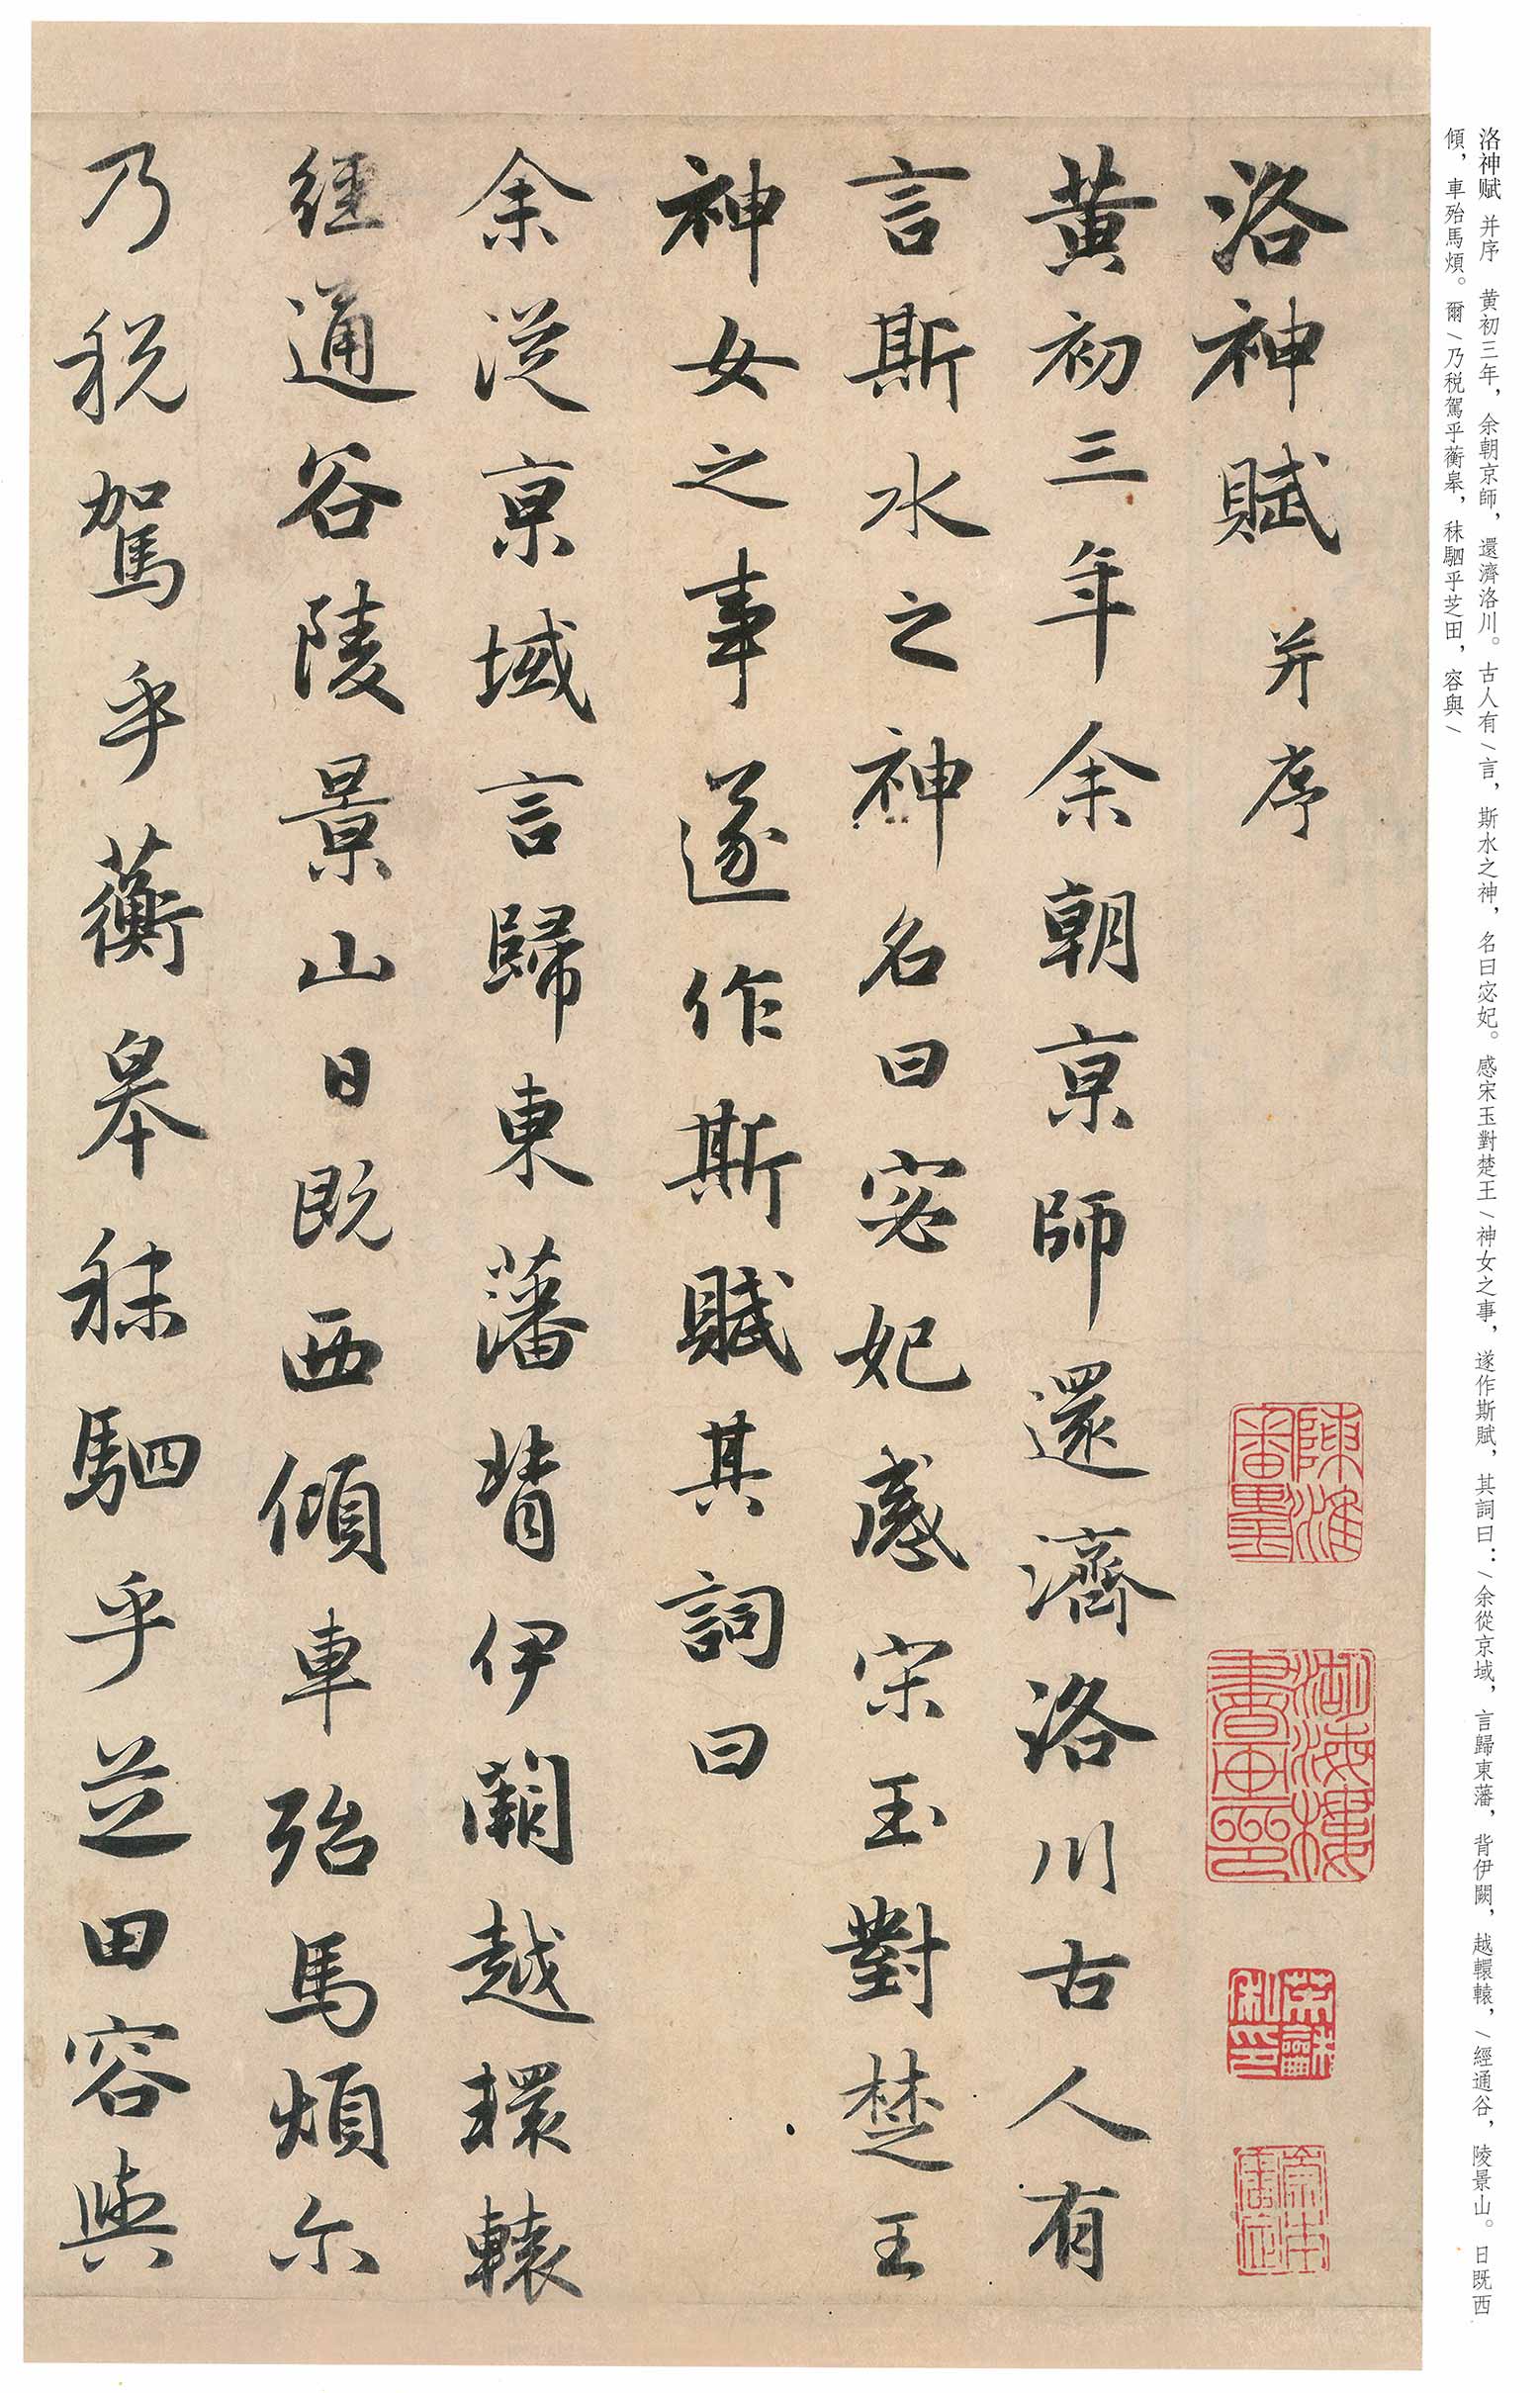 洛神賦 并序 黄初三年，余朝京師，還濟洛川。古人有\言，斯水之神，名曰宓妃。感宋玉對楚王\神女之事，遂作斯賦，其詞曰：\余從京域，言歸東藩，背伊闕，越轘轅，\經通谷，陵景山。日既西
傾，車殆馬煩。爾\乃税駕乎蘅皋，秣駟乎芝田，容與\
洛神賦并序
黄初三年余朝京師還濟洛川古人有
言斯水之神名曰宓妃感宋玉對楚王
神女之事遂作斯賦其詞曰
余從京域言歸東藩背伊闕越轘轅
經通谷陵景山日既西傾車殆馬煩尔
乃税駕乎蘅皋秣駟乎芝田容與
陳淮
審墨
御海樓
書画印